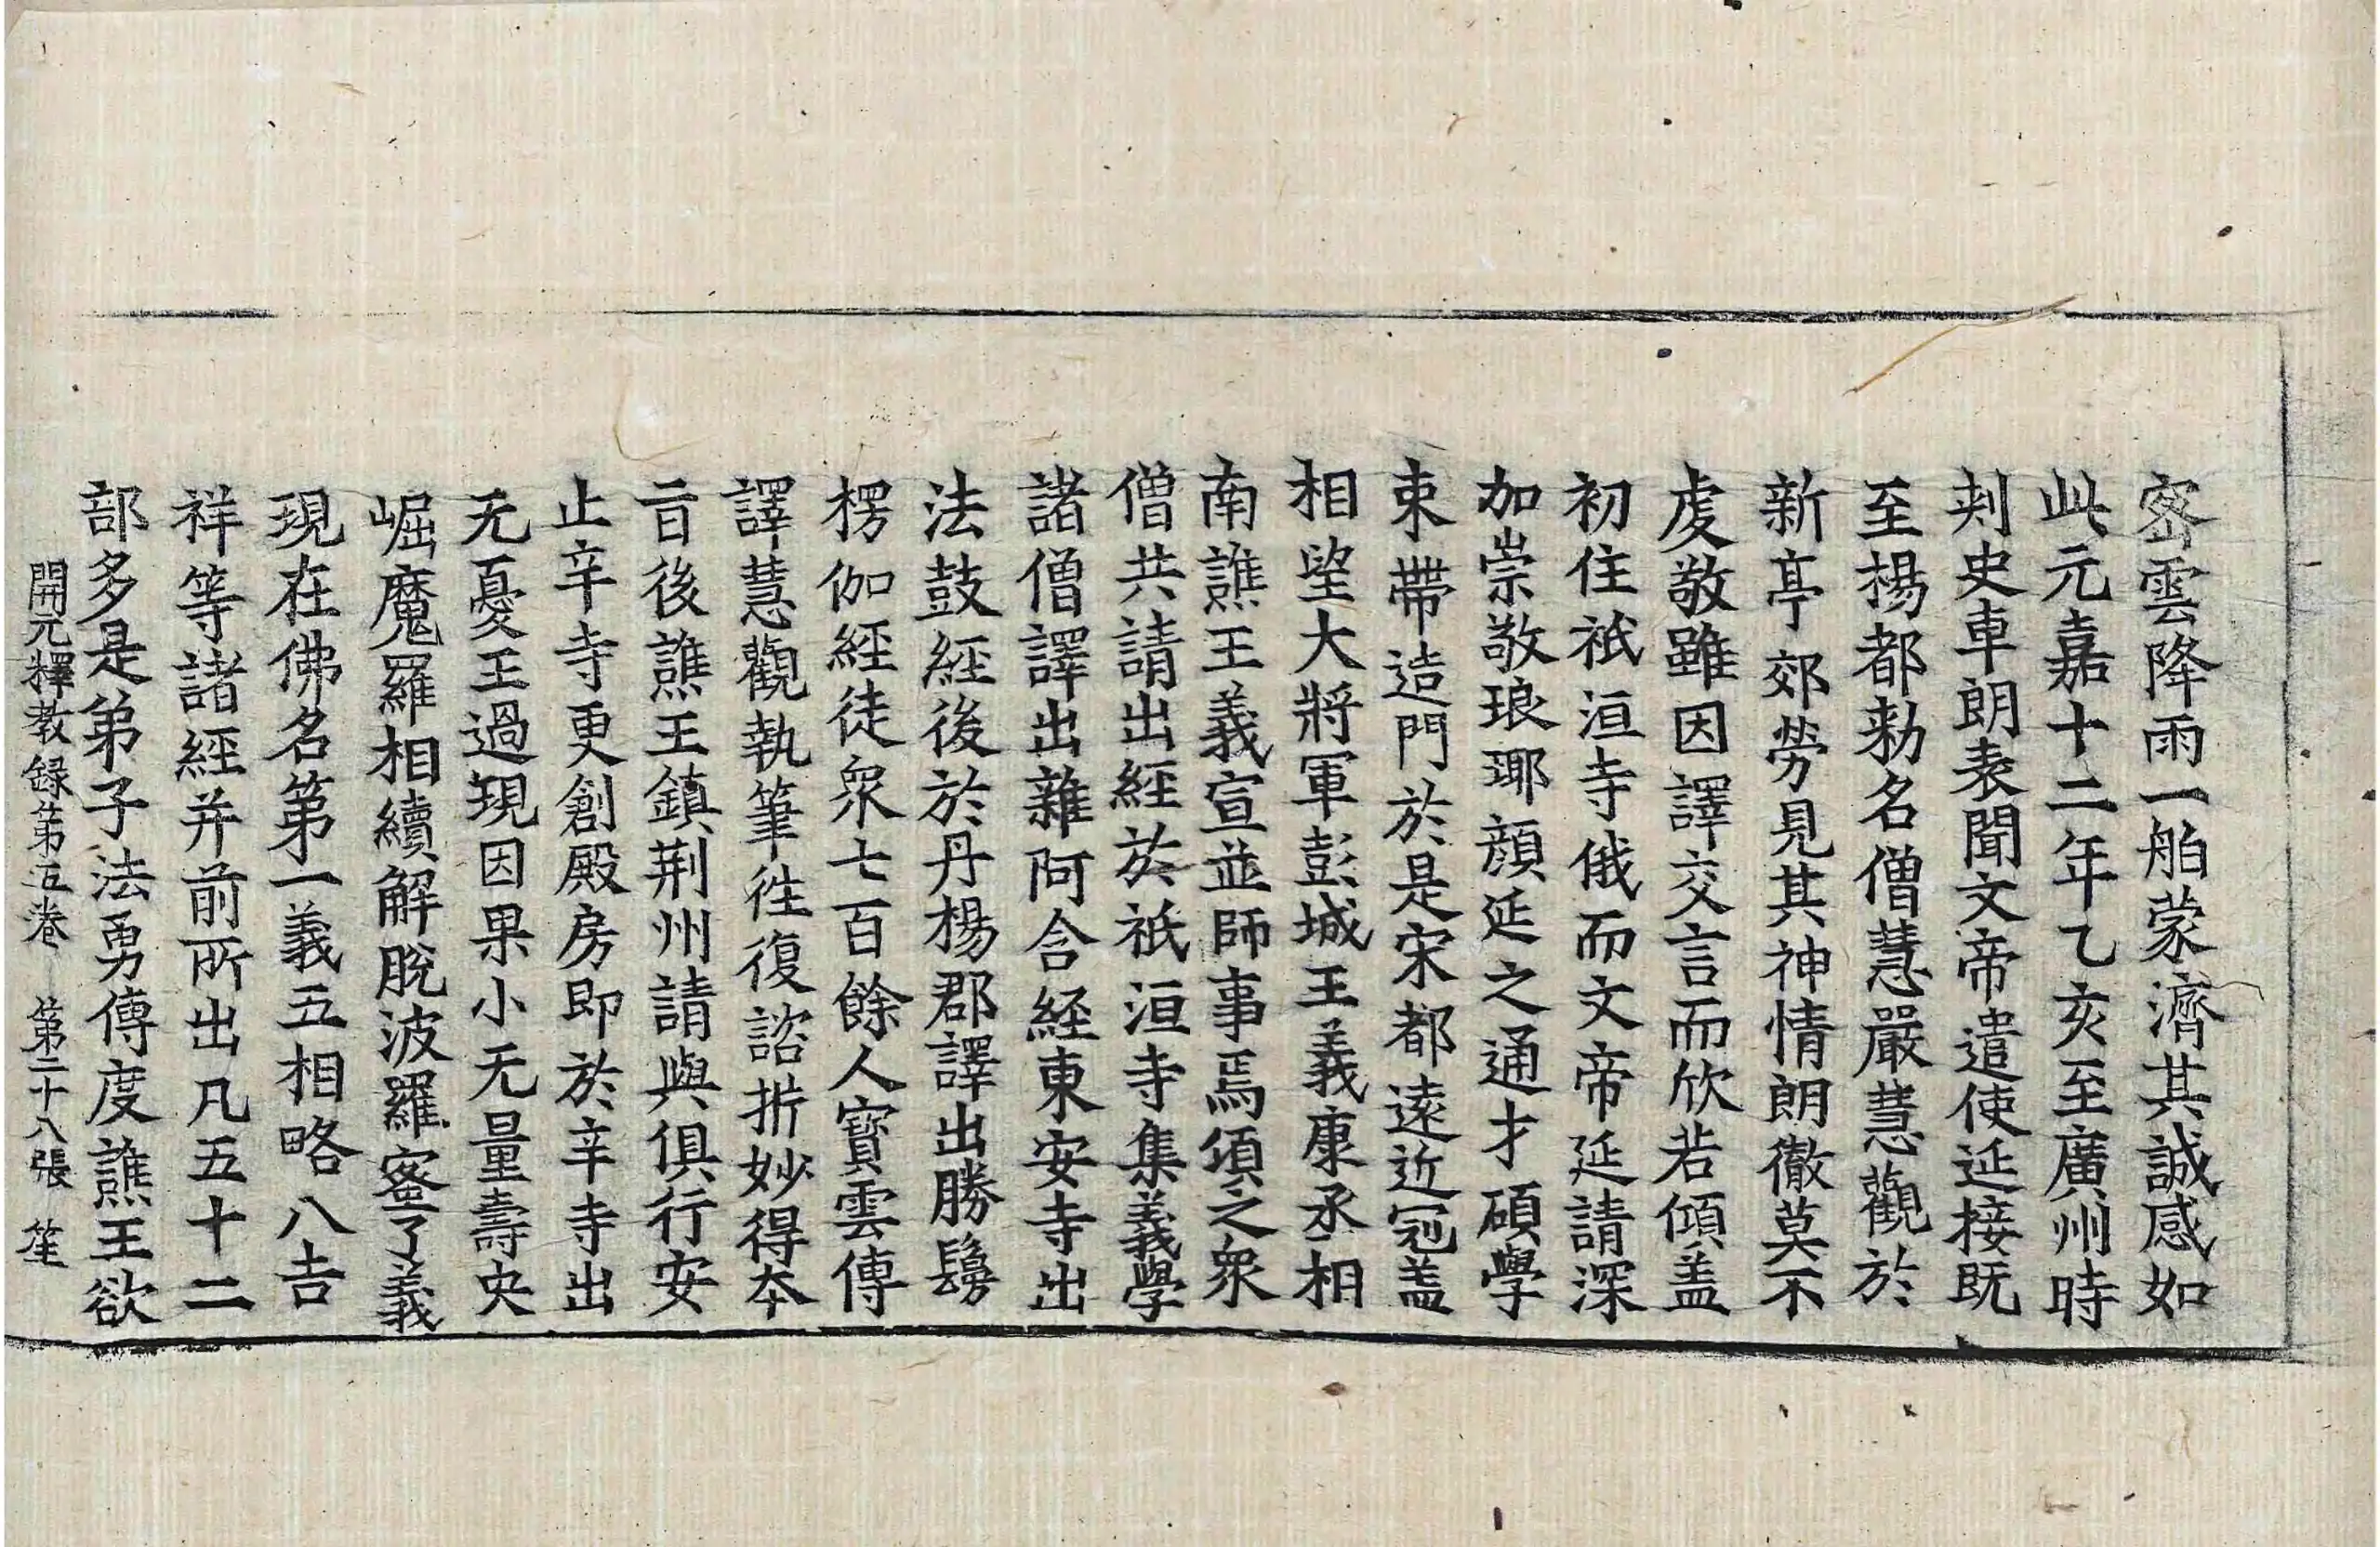 密雲降雨一舶蒙濟其誠感如
此元嘉十二年乙亥至廣州時
刾史車朗表聞文帝遣使延接既
至楊都勑名僧慧嚴慧觀於
新亭郊勞見其神情朗徹莫不
虔敬雖因譯交言而欣若傾盖
初住祇洹寺俄而文帝延請深
加崇敬琅瑘顔延之通才碩學
束帶造門於是宋都遠近冠盖
相望大將軍彭城王義康丞相
南譙王義宣並師事焉頃之衆
僧共請出經於祇洹寺集義學
諸僧譯出雜阿含経東安寺出
法鼓經後於丹楊郡譯出勝鬘
楞伽經徒衆七百餘人寶雲傳
譯慧觀執筆徃復諮析妙得夲
旨後譙王鎮荆州請與俱行安
止辛寺更創殿房即於辛寺出
无憂王過現因果小无量壽央
崛魔羅相續解脫波羅蜜了義
現在佛名第一義五相略八吉
祥等諸經并前所出凡五十二
部多是弟子法勇傳度譙王欲
開元釋教録第五卷 第二十八張 笙